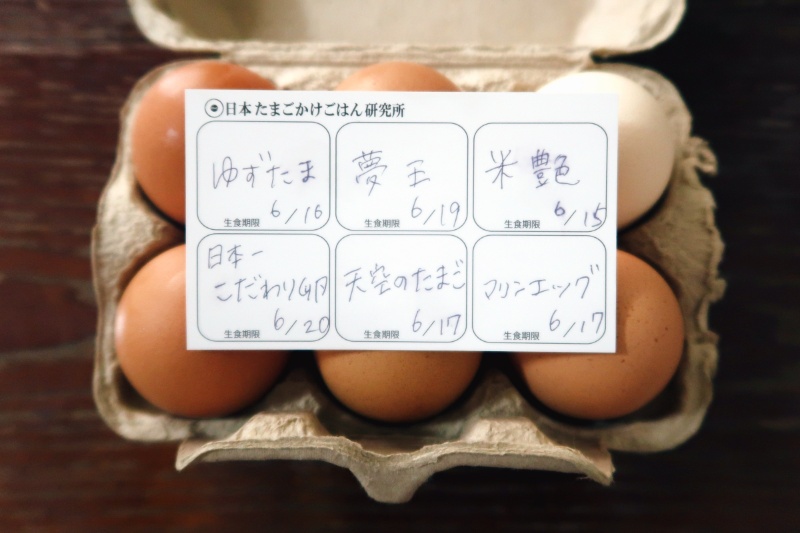 日本たまごかけごはん研究所
ゆずたま
6/16
生食期限
夢王
6/19
生食期限
米艶
6/15
生食期限
日本一
こだわり卵
6/20
生食期限
天空のたまご
6/17
生食期限
マリンエッグ
6/17
生食期限